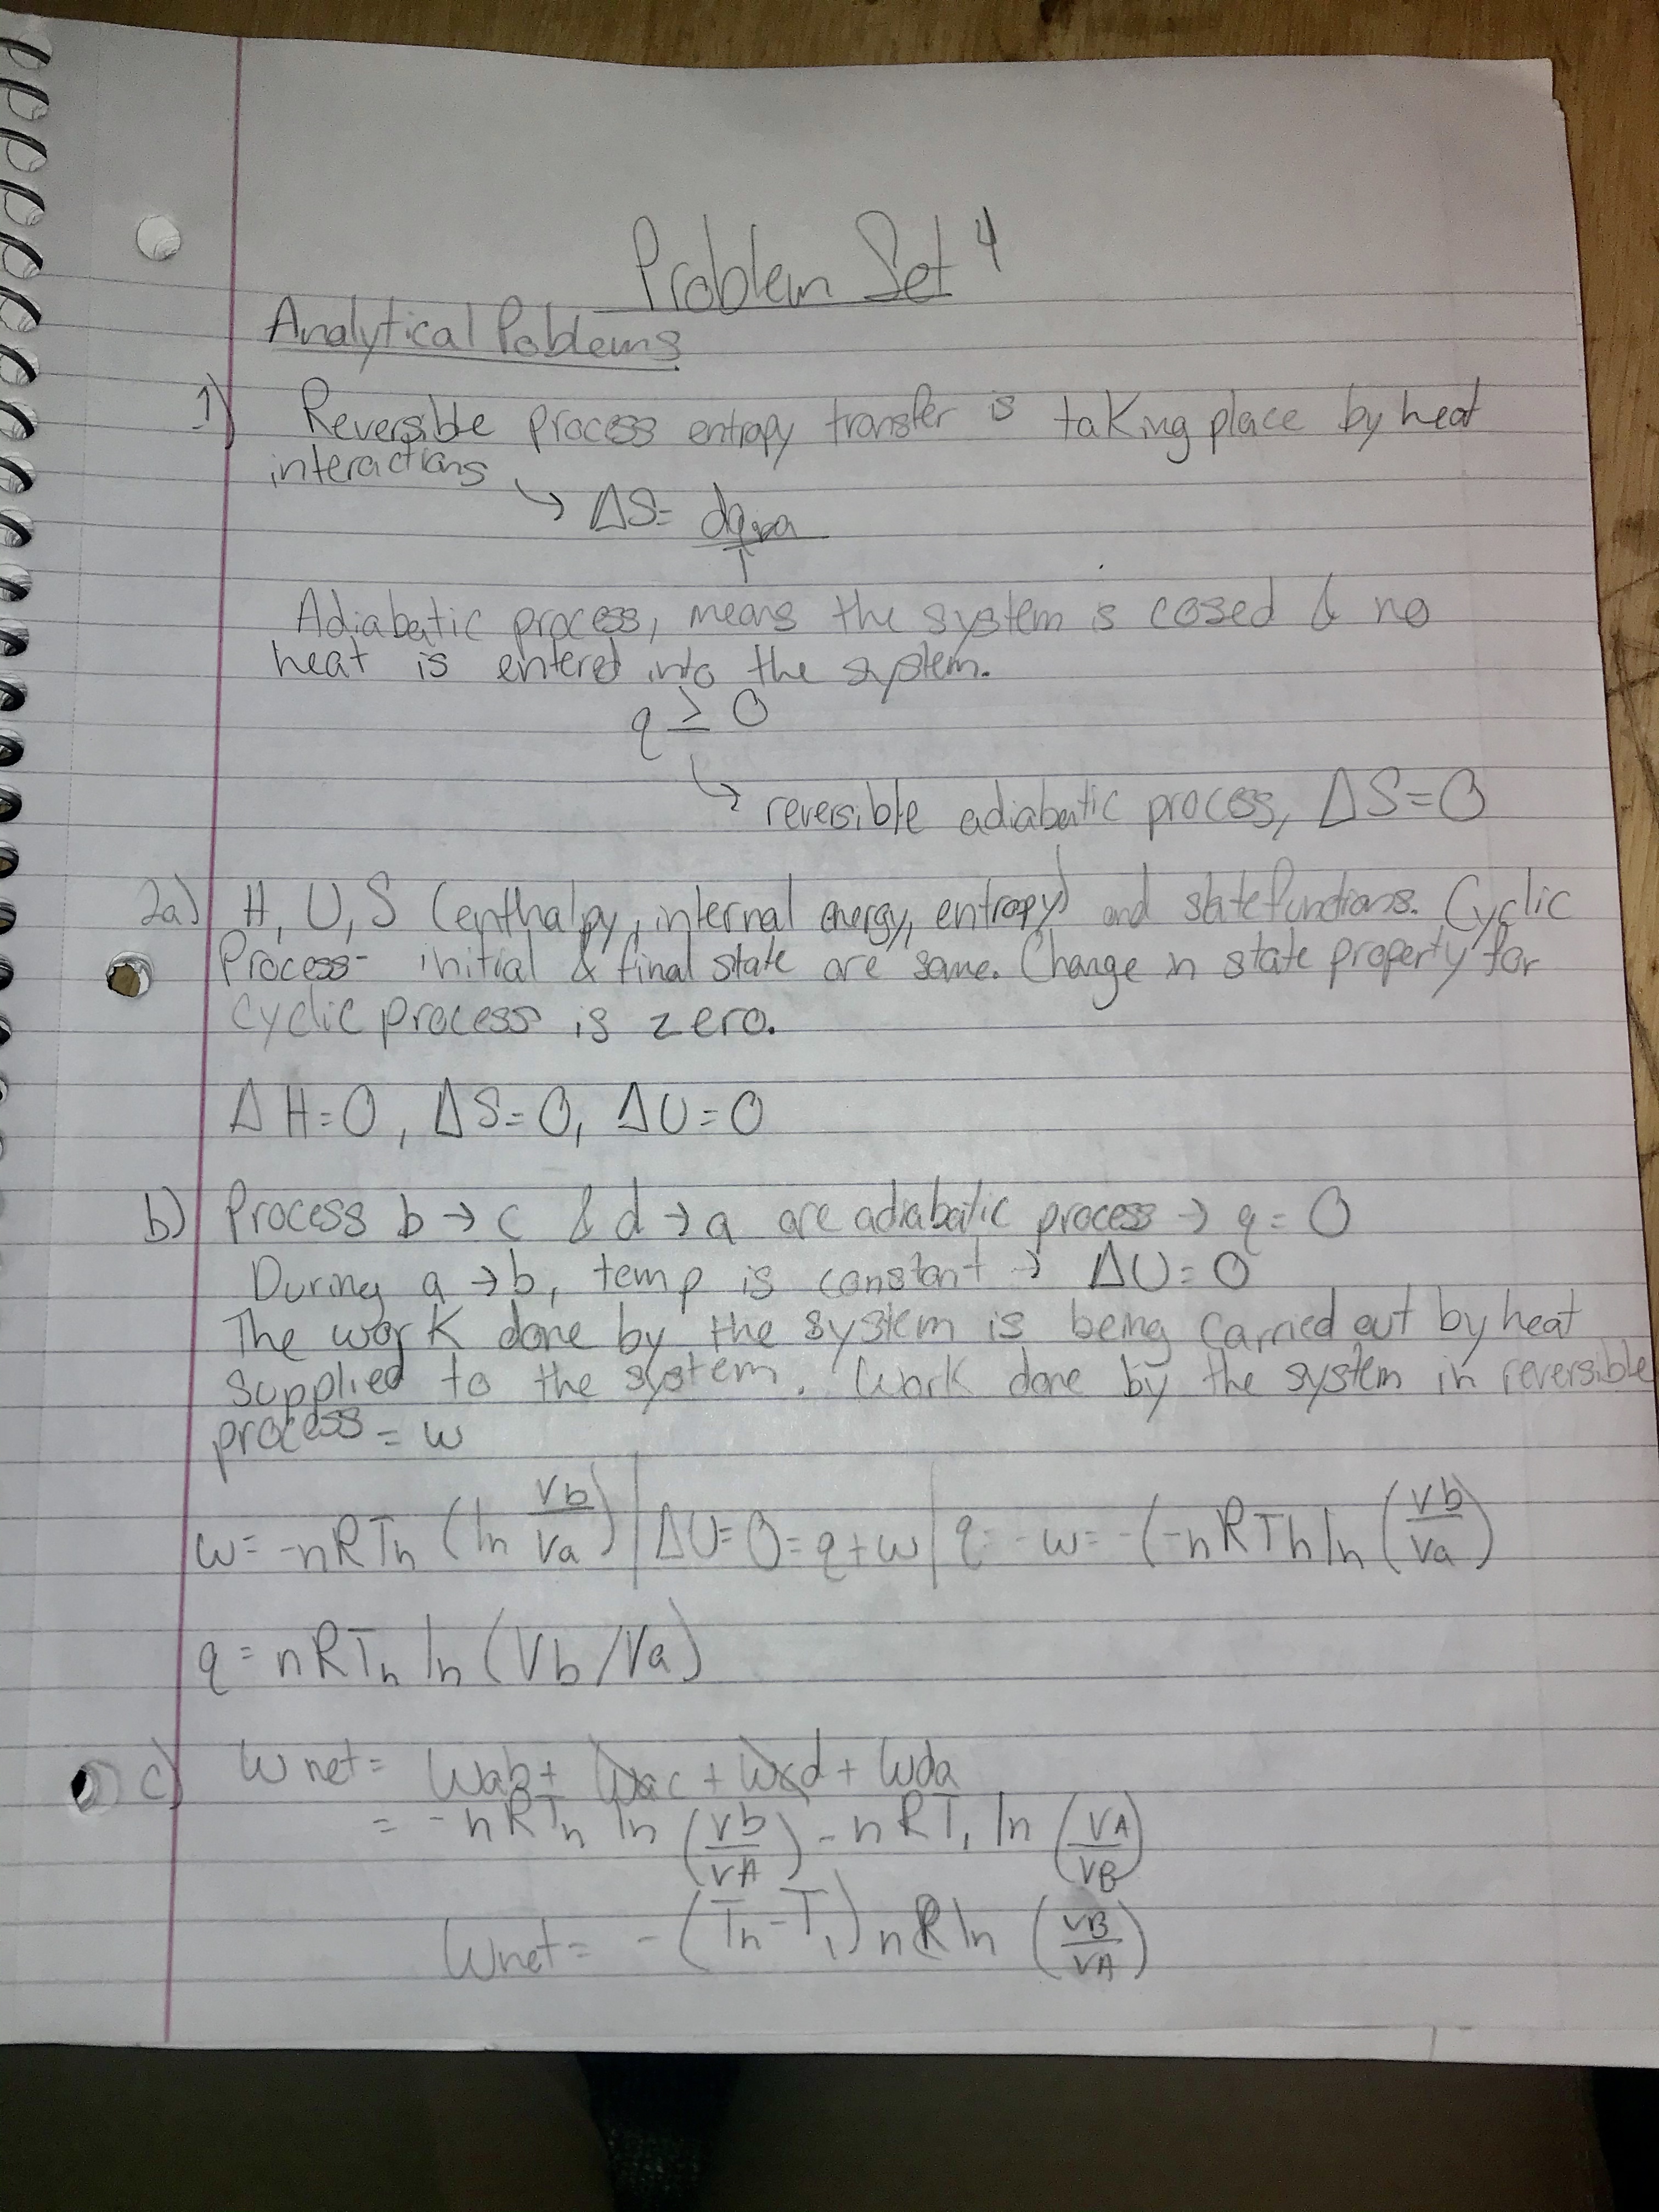 Problem Set 4
Analytical Poblems
1) Reversible process entropy transfer is taking place by heat
interactions → ΔS= dqrev/T
Adiabatic process, means the system is cosed & no
heat is entered into the system.
q ≥ 0
↳ reversible adiabatic process, ΔS=0
2a) H, U, S (enthalpy, internal energy, entropy) and state functions. Cyclic
Process- initial & final state are same. Change in state property for
cyclic process is zero.
ΔH=0, ΔS=0, ΔU=0
b) Process b→c & d→a are adiabatic process → q=0
During a→b, temp is constant → ΔU=0
The work done by the system is being carried out by heat
supplied to the system. Work done by the system in reversible
process = w
w= -nRTh (ln Vb/Va) | ΔU=0=q+w | q=-w=-(-nRTh ln (Vb/Va)
q = nRTh ln (Vb/Va)
c) Wnet= Wab+ Wac + Wcd + Wda
= -nRTh ln (Vb/VA) - nRT, ln (VA/VB)
Wnet= -(Th-T,) nR ln (VB/VA)